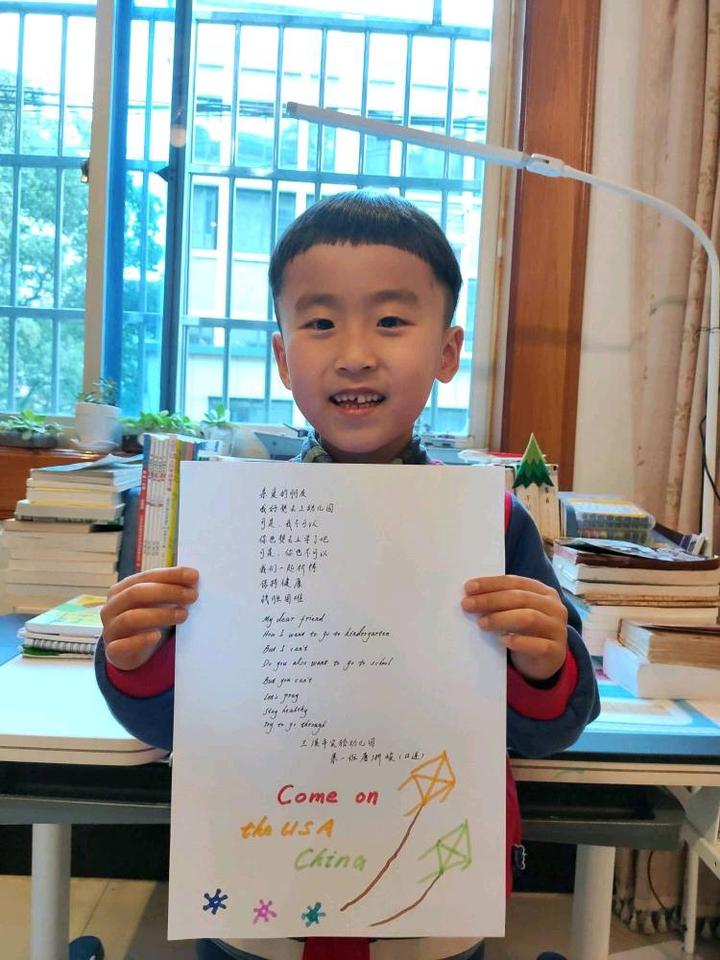 亲爱的朋友
我好想去上幼儿园
可是，我不可以
你也想去上学了吧
可是，你也不可以
我们一起祈祷
保持健康
战胜困难
My dear friend
How I want to go to kindergarten
But I can't
Do you also want to go to school
But you can't
Let's pray
Stay healthy
Try to go through
兰溪市实验幼儿园
Come on
the USA
China